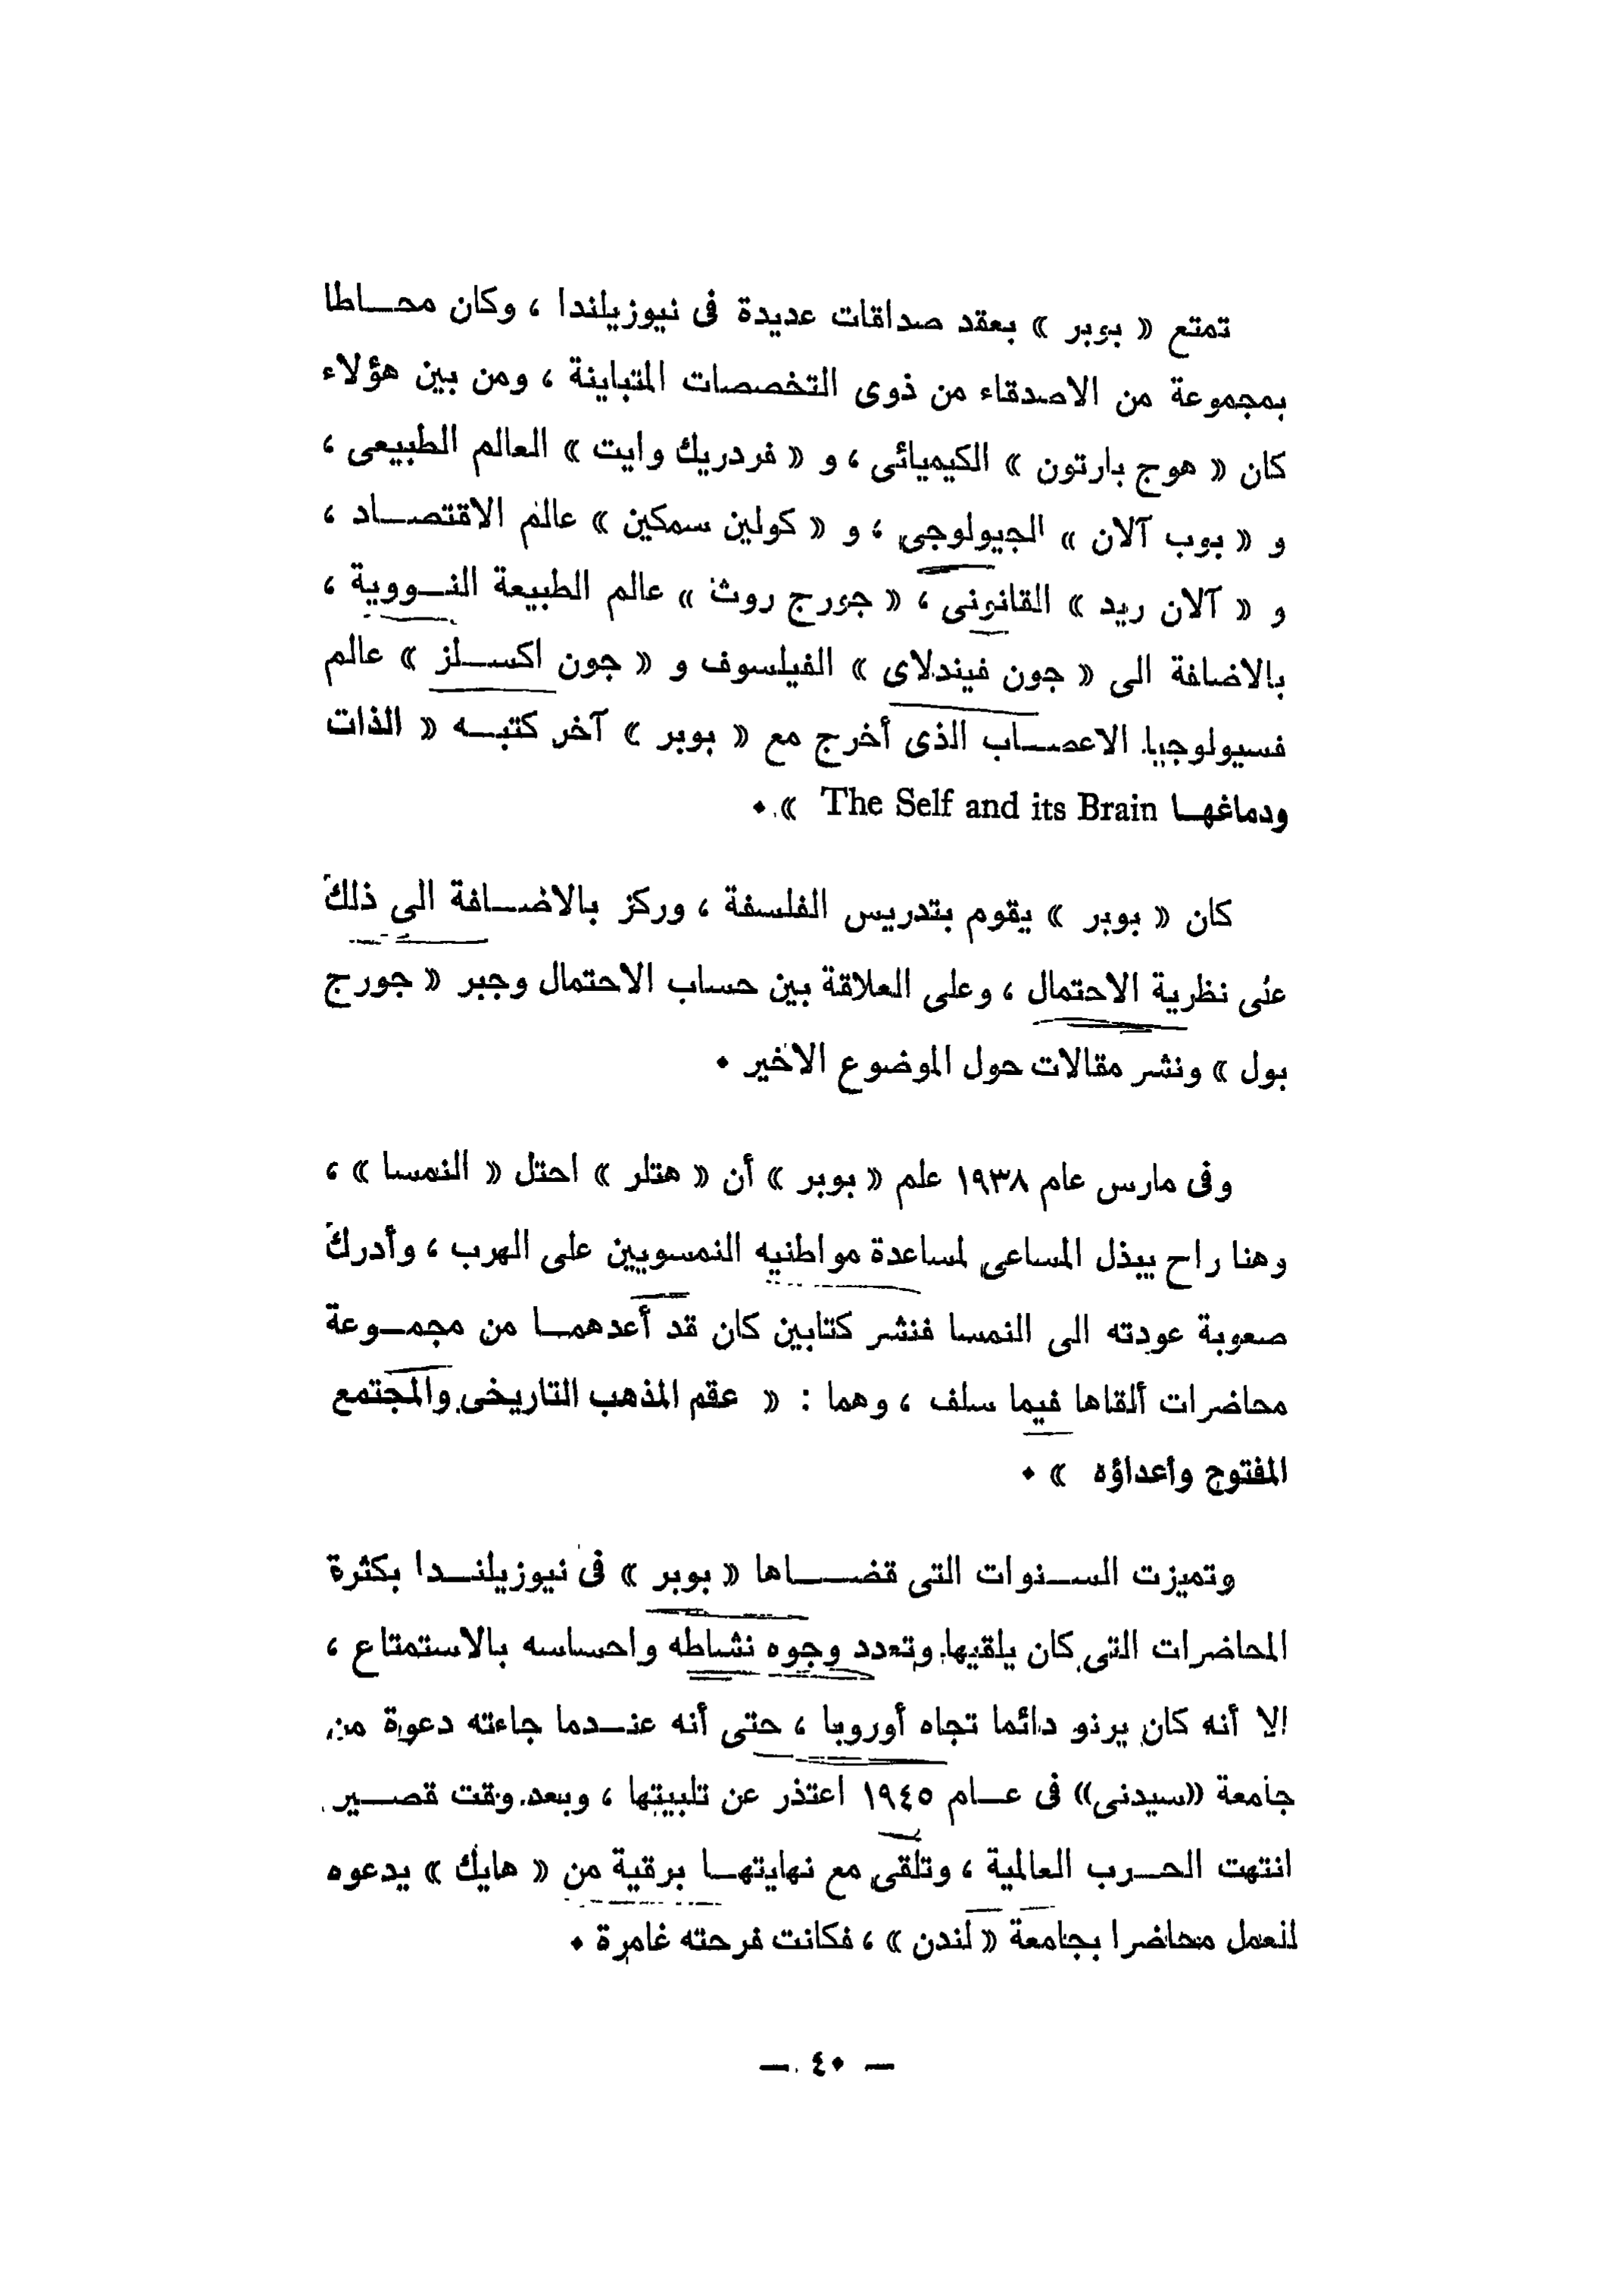 تمتع « بوبر » بعقد صداقات عديدة فى نيوزيلندا ، وكان محاطا
بمجموعة من الاصدقاء من ذوى التخصصات المتباينة ، ومن بين هؤلاء
كان « هوج بارتون » الكيميائى ، و « فردريك وايت » العالم الطبيعى ،
و « بوب آلان » الجيولوجى ، و « كولين سمكين » عالم الاقتصاد ،
و « آلان ريد » القانونى ، « جورج روث » عالم الطبيعة النووية ،
بالاضافة الى « جون فيندلاى » الفيلسوف و « جون اكسلز » عالم
فسيولوجيا الاعصاب الذى أخرج مع « بوبر » آخر كتبه « الذات
ودماغها The Self and its Brain » ٠
كان « بوبر » يقوم بتدريس الفلسفة ، وركز بالاضافة الى ذلك
على نظرية الاحتمال ، وعلى العلاقة بين حساب الاحتمال وجبر « جورج
بول » ونشر مقالات حول الموضوع الاخير ٠
وفى مارس عام ١٩٣٨ علم « بوبر » أن « هتلر » احتل « النمسا » ،
وهنا راح يبذل المساعى لمساعدة مواطنيه النمسويين على الهرب ، وأدرك
صعوبة عودته الى النمسا فنشر كتابين كان قد أعدهما من مجموعة
محاضرات ألقاها فيما سلف ، وهما : « عقم المذهب التاريخى والمجتمع
المفتوح وأعداؤه » ٠
وتميزت السنوات التى قضاها « بوبر » فى نيوزيلندا بكثرة
المحاضرات التى كان يلقيها وتعدد وجوه نشاطه واحساسه بالاستمتاع ،
الا أنه كان يرنو دائما تجاه أوروبا ، حتى أنه عندما جاءته دعوة من
جامعة «سيدنى» فى عام ١٩٤٥ اعتذر عن تلبيتها ، وبعد وقت قصير
انتهت الحرب العالمية ، وتلقى مع نهايتها برقية من « هايك » يدعوه
للعمل محاضرا بجامعة « لندن » ، فكانت فرحته غامرة ٠
— ٤٠ —